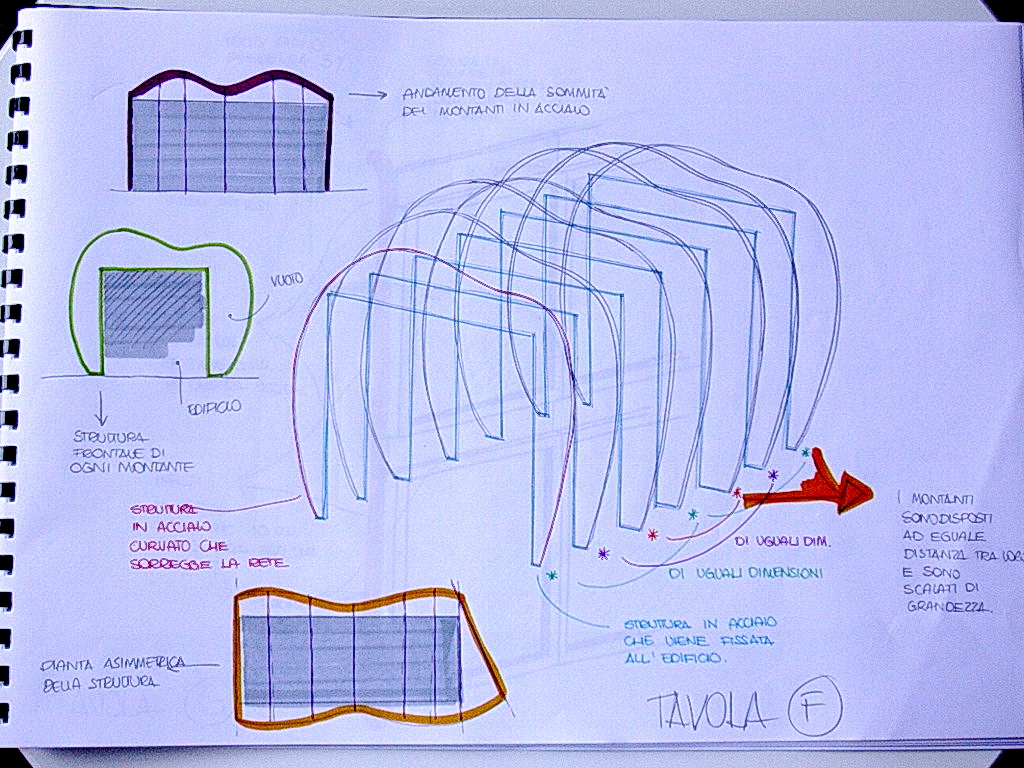 ANDAMENTO DELLA SOMMITA'
DEI MONTANTI IN ACCIAIO
VUOTO
EDIFICIO
STRUTTURA
FRONTALE DI
OGNI MONTANTE
STRUTTURA
IN ACCIAIO
CURVATO CHE
SORREGGE LA RETE
I MONTANTI
SONO DISPOSTI
AD EGUALE
DISTANZA TRA LORO
E SONO
SCALATI DI
GRANDEZZA.
DI UGUALI DIM.
DI UGUALI DIMENSIONI
STRUTTURA IN ACCIAIO
CHE VIENE FISSATA
ALL'EDIFICIO.
PIANTA ASIMMETRICA
DELLA STRUTTURA
TAVOLA F